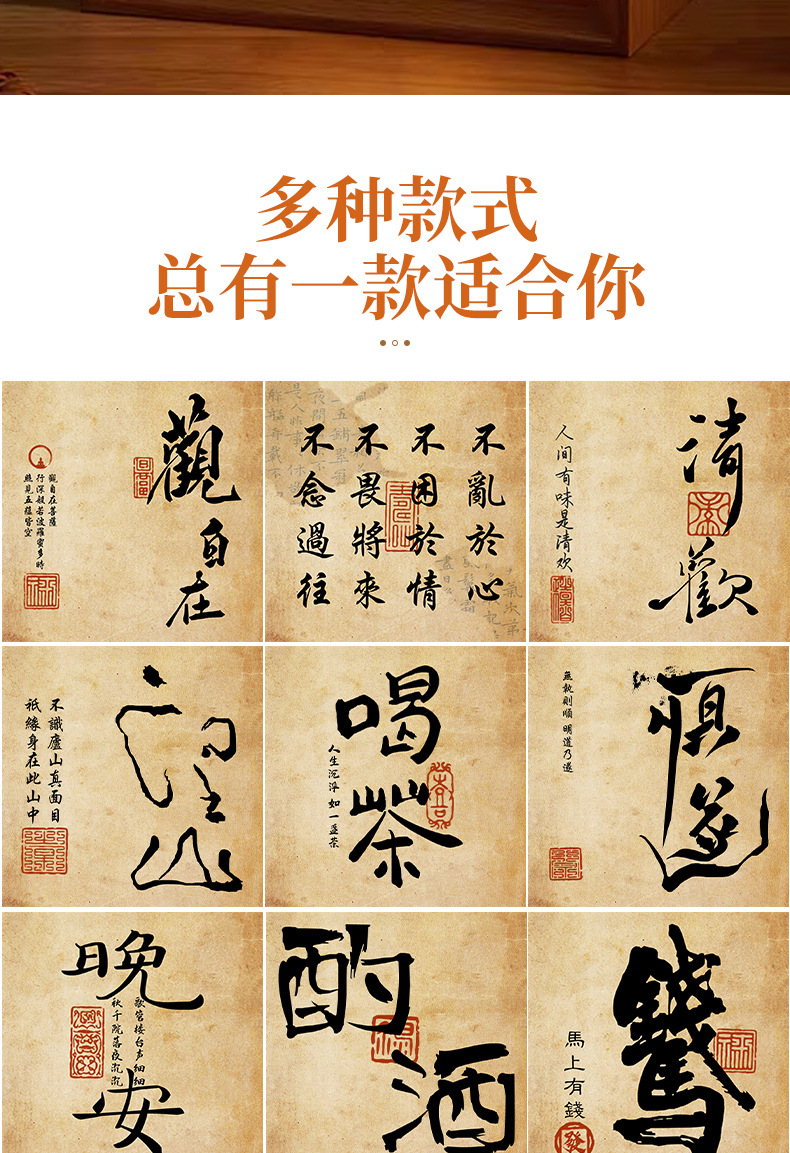 多种款式
总有一款适合你
觀自在
觀自在菩薩
行深般若波羅蜜多時
照見五蘊皆空
不亂於心
不困於情
不畏將來
不念過往
清歡
人间有味是清欢
望山
不識廬山真面目
祇緣身在此山中
喝茶
人生沉浮如一盏茶
慎遂
無執則順 明道乃遂
晚安
歌管楼台声细细
秋千院落夜沉沉
酌酒
馬上有錢
發